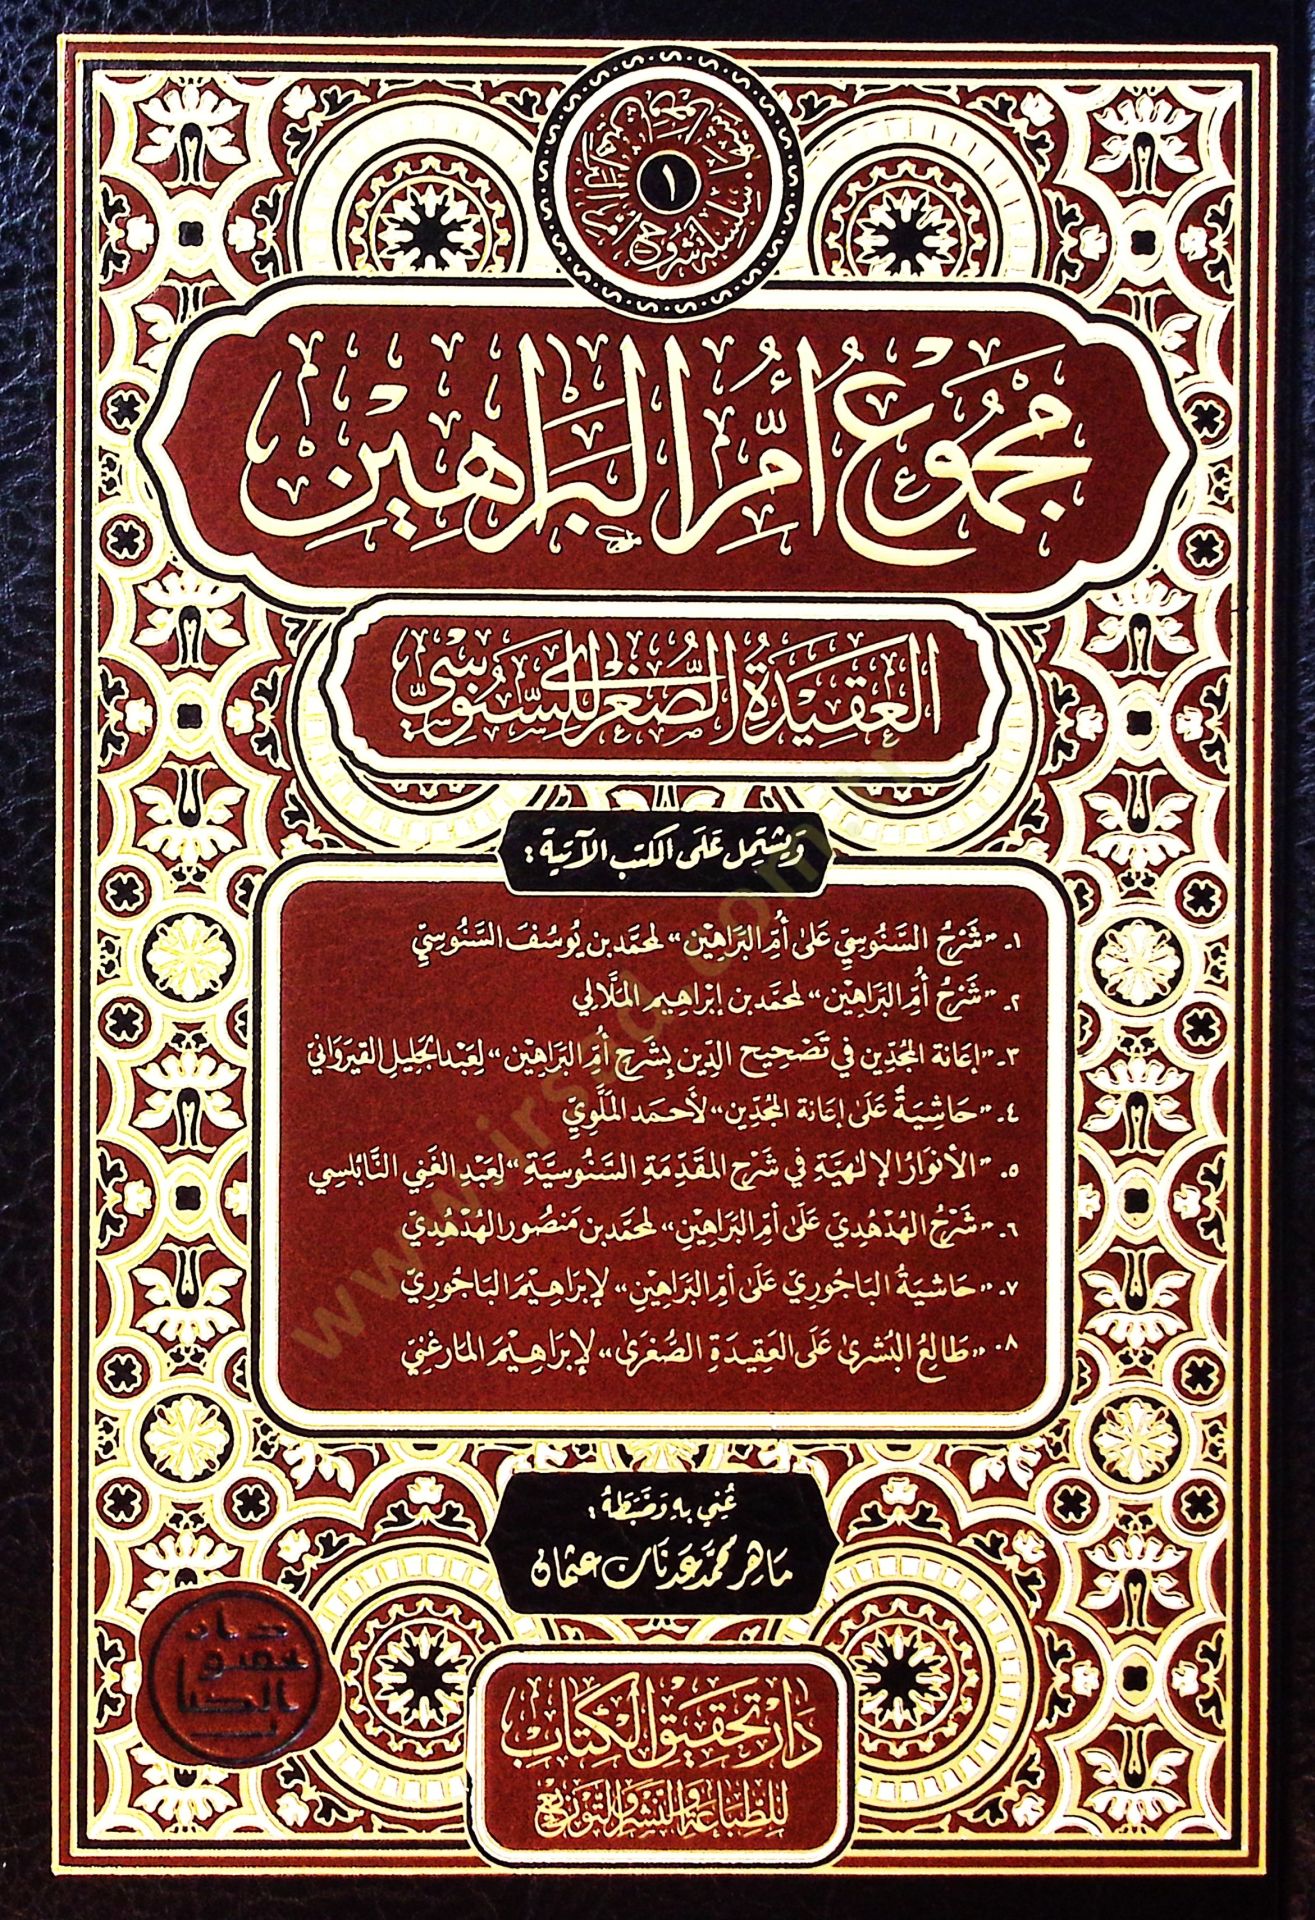 ١
سلسلة شروح أم البراهين
مَجْمُوعُ أُمِّ البَرَاهِينِ
العَقِيدَةُ الصُّغْرَى لِلسَّنُوسِيِّ
وَيشتمِل عَلَى الكتب الآتية :
١- «شَرْحُ السَّنُوسِيِّ عَلَى أُمِّ البَرَاهِيْن» لمحمَّد بن يُوسُفَ السَّنُوسِيِّ
٢- «شَرْحُ أُمِّ البَرَاهِيْن» لمحمَّد بن إبْراهِيم المَلَّالي
٣- «إعَانة المُجدِّين في تَصْحِيح الدِّين بِشَرْحِ أمِّ البَرَاهِيْن» لِعَبْد الجَلِيل القَيرَوَانيّ
٤- «حَاشِيَةٌ عَلَى إعَانة المُجدِّين» لأَحمَد المَلَّوِيِّ
٥- «الأنوَارُ الإلهيَّة في شَرْح المقَدِّمَةِ السَّنُوسِيَّة» لِعَبْدِ الغَنِي النَّابُلسِي
٦- «شَرْحُ الهُدْهُدِيِّ عَلَى أمِّ البَرَاهِيْنِ» لمحمَّد بن مَنصُور الهُدْهُدِيِّ
٧- «حَاشيَةُ البَاجُوريِّ عَلَى أمِّ البَرَاهِيْنِ» لإبرَاهِيْمَ البَاجُوريِّ
٨- «طَالِعُ البُشرىٰ عَلَى العَقِيدَةِ الصُّغرَىٰ» لإبْرَاهِيْمَ المارغنيِّ
عُنِي بِهِ وَضَبَطَهُ :
مَاهِر محمَّد عَدنان عثمان
دَار تحقيق الكتاب
للطباعة والنشر والتوزيع
دار
تحقيق
الكتاب
www.irsad.com.tr